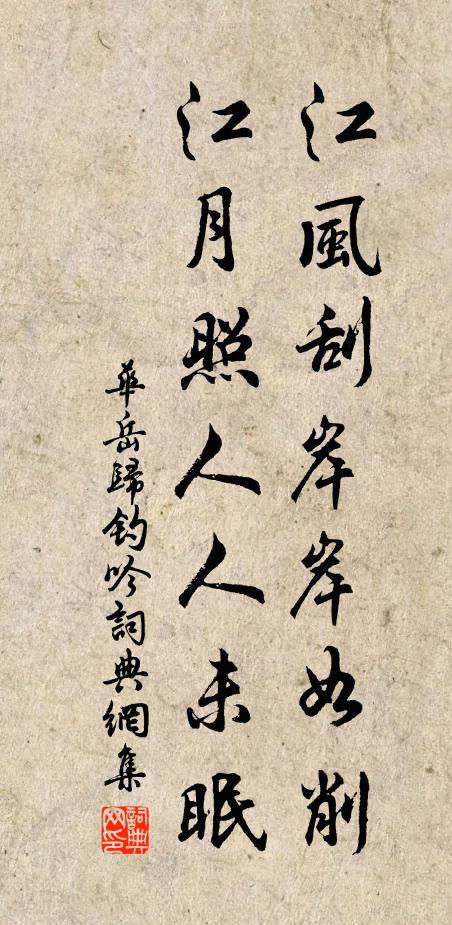 江風刮岸岸如削
江月照人人未眠
華岳歸釣吟詞典網集
詞典網印